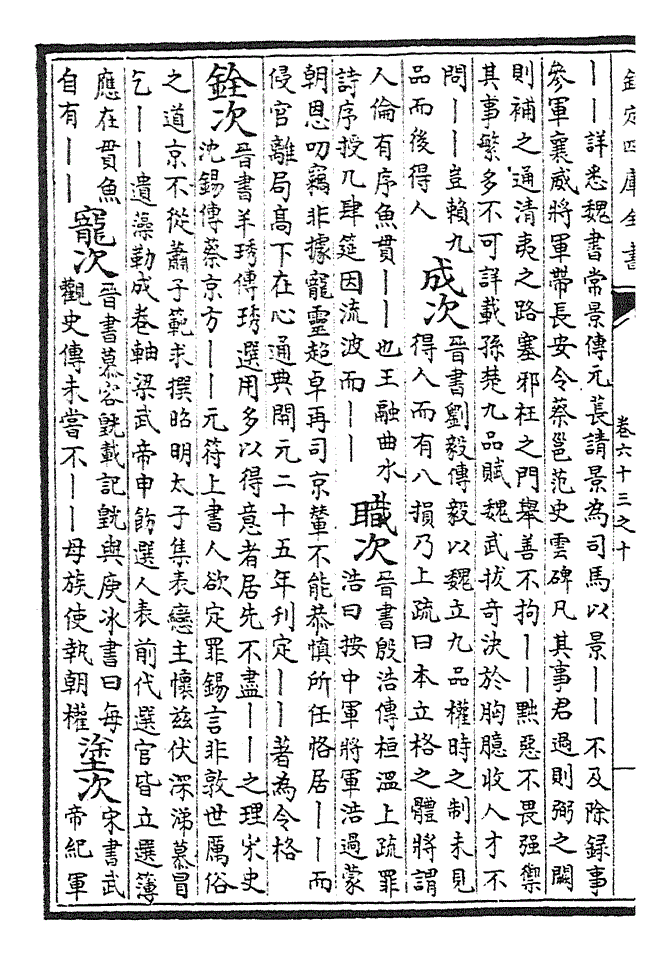 欽定四庫全書
卷六十三之十
——詳悉魏書常景傳元萇請景為司馬以景——不及除録事
參軍襄威將軍帶長安令蔡邕范史雲碑凡其事君過則弼之闕
則補之通清夷之路塞邪枉之門舉善不拘——黜惡不畏强禦
其事繁多不可詳載孫楚九品賦魏武拔奇決於胸臆收人才不
問——豈賴九
品而後得人
成次
晉書劉毅傳毅以魏立九品權時之制未見
得人而有八損乃上疏曰本立格之體將謂
人倫有序魚貫——也王融曲水
詩序授几肆筵因流波而——
職次
晉書殷浩傳桓溫上疏罪
浩曰按中軍將軍浩過蒙
朝恩叨竊非據寵靈超卓再司京輦不能恭慎所任恪居——而
侵官離局高下在心通典開元二十五年刊定——著為令格
銓次
晉書羊琇傳琇選用多以得意者居先不盡——之理宋史
沈錫傳蔡京方——元符上書人欲定罪錫言非敦世厲俗
之道京不從蕭子範求撰昭明太子集表戀主懷兹伏深涕慕冒
乞——遺藻勒成卷軸梁武帝申飭選人表前代選官皆立選簿
應在貫魚
自有——
寵次
晉書慕容皝載記皝與庾冰書曰每
觀史傳未嘗不——母族使執朝權
塗次
宋書武
帝紀軍